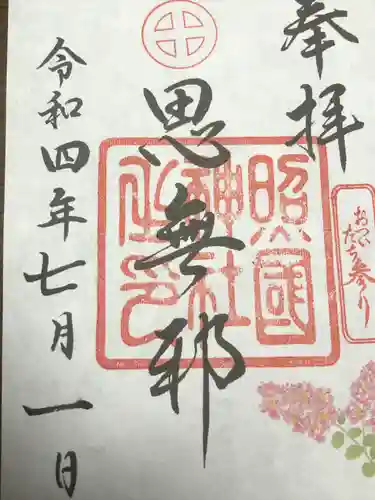 奉拝
おついたち参り
照國神社之印
思無邪
令和四年七月一日